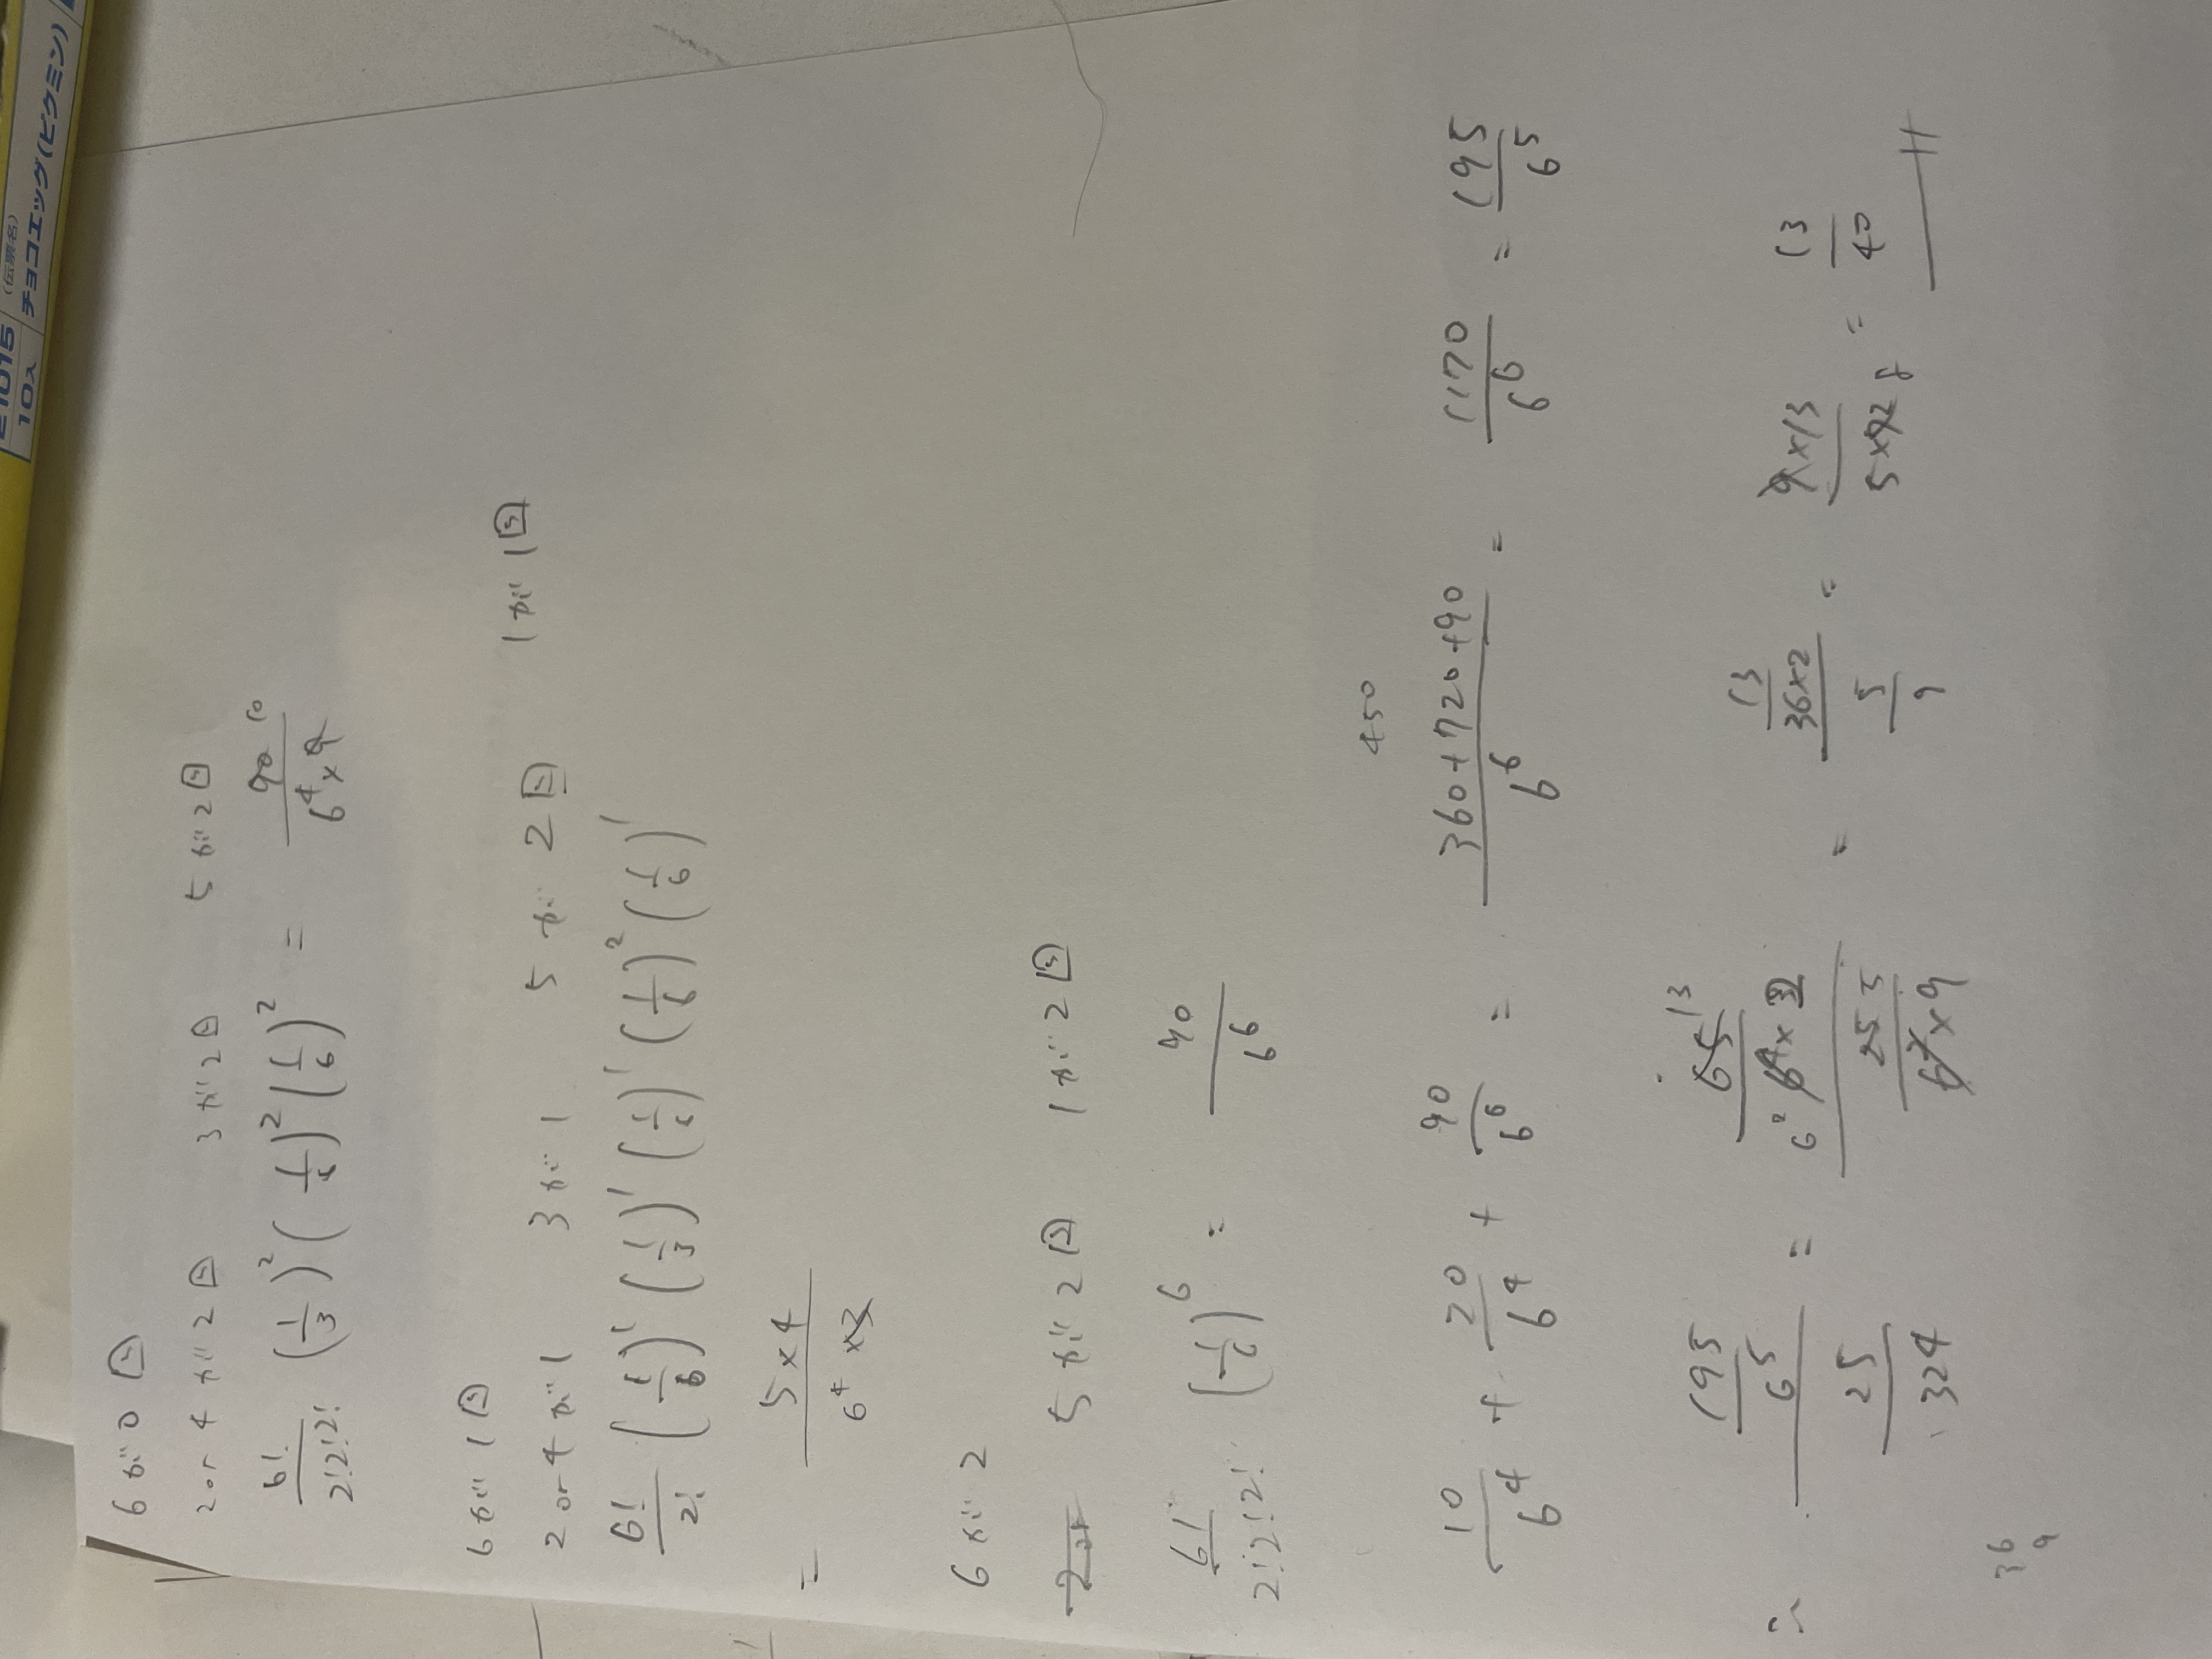 21015
10入
(伝票名)
チョコエッグ(ピクミン)
6が0回
2or4が2回 3が2回 5が2回
6!/2!2!2! (1/3)^2 (1/6)^2 (1/6)^2 = 90 10/6^4×9
6が1回
2or4が1 3が1 5が2回 1が1回
6!/2! (1/6)^1 (1/3)^1 (1/6)^1 (1/6)^2 (1/6)^1
= 5×4/6^4×3
6が2
2or 5が2回 1が2回
6!/2!2!2! (1/6)^6 = 90/6^6
450
10/6^4 + 20/6^4 + 90/6^6 = 360+720+90/6^6 = 1170/6^6 = 195/6^5
195/6^5 / 25/324 = 65 13/6^2 6^4×2 / 25 5/6^2×9 = 13/36×2 / 5/9 = 9×13/5×72 8 = 13/40
36
9